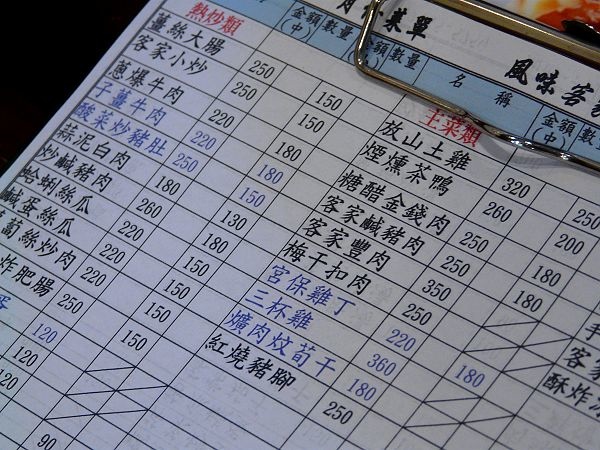 月 菜單
風味客家
熱炒類 金額(中) 數量 金額 數量
薑絲大腸 250 150
客家小炒 250 180
蔥爆牛肉 220 180
子薑牛肉 220
酸菜炒豬肚 250 150
蒜泥白肉 180 130
炒鹹豬肉 260 180
蛤蜊絲瓜 220 150
鹹蛋絲瓜 220 150
蔔絲炒肉 220 150
炸肥腸 250 150
120
120
120
90
名稱 金額(中) 數量
主菜類
放山土雞 320 250
煙燻茶鴨 260 200
糖醋金錢肉 250 180
客家鹹豬肉 250 180
客家豐肉 350
梅干扣肉 250
宮保雞丁 220 180
三杯雞 360
爌肉炆筍干 180
紅燒豬腳 250
手
客家
酥炸